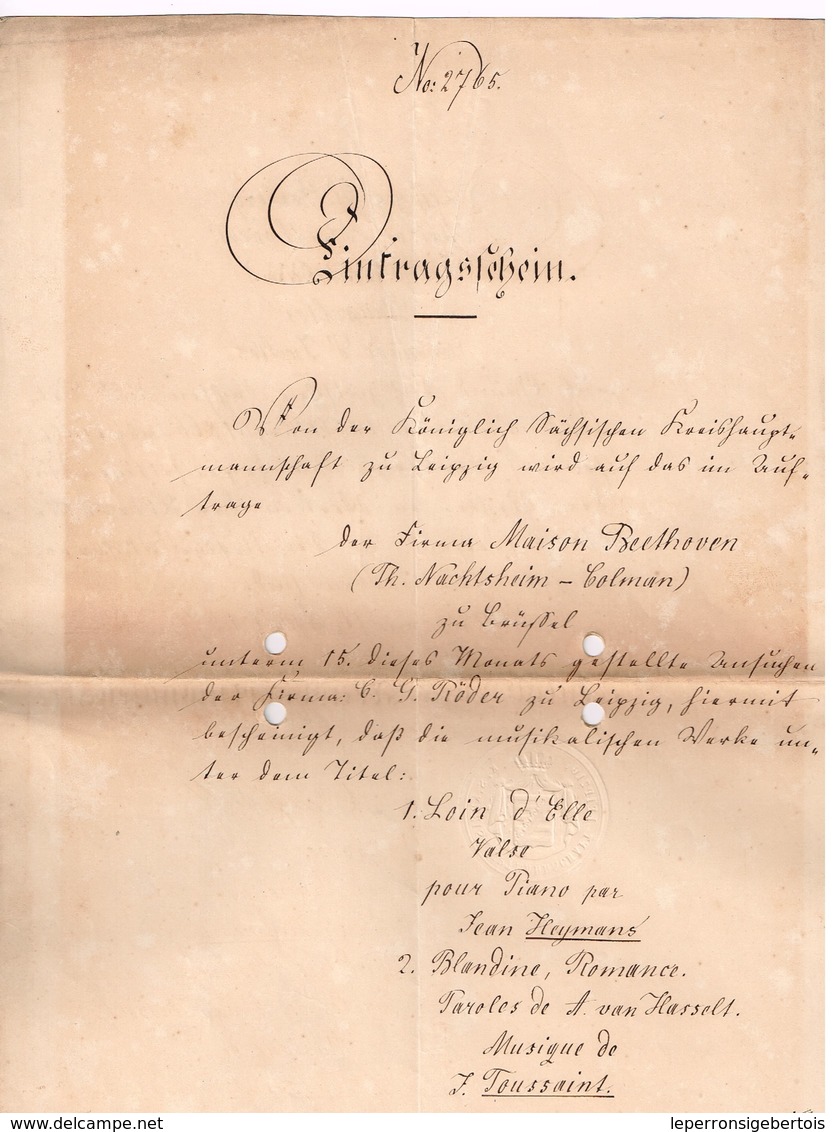 No: 2765.
Eintragsschein.
Von der Königlich Sächsischen Kreishaupt-
mannschaft zu Leipzig wird auf das im Auf-
trage
der Firma Maison Beethoven
(Th. Nachtsheim - Colman)
zu Brüssel
unterm 15. dieses Monats gestellte Ansuchen
der Firma: C. G. Röder zu Leipzig, hiermit
bescheinigt, daß die musikalischen Werke un-
ter dem Titel:
1. Loin d'Elle
Valse
pour Piano par
Jean Heymans
2. Blandine, Romance.
Paroles de A. van Hasselt.
Musique de
J. Toussaint.
delcampe.net
leperronsigebertois